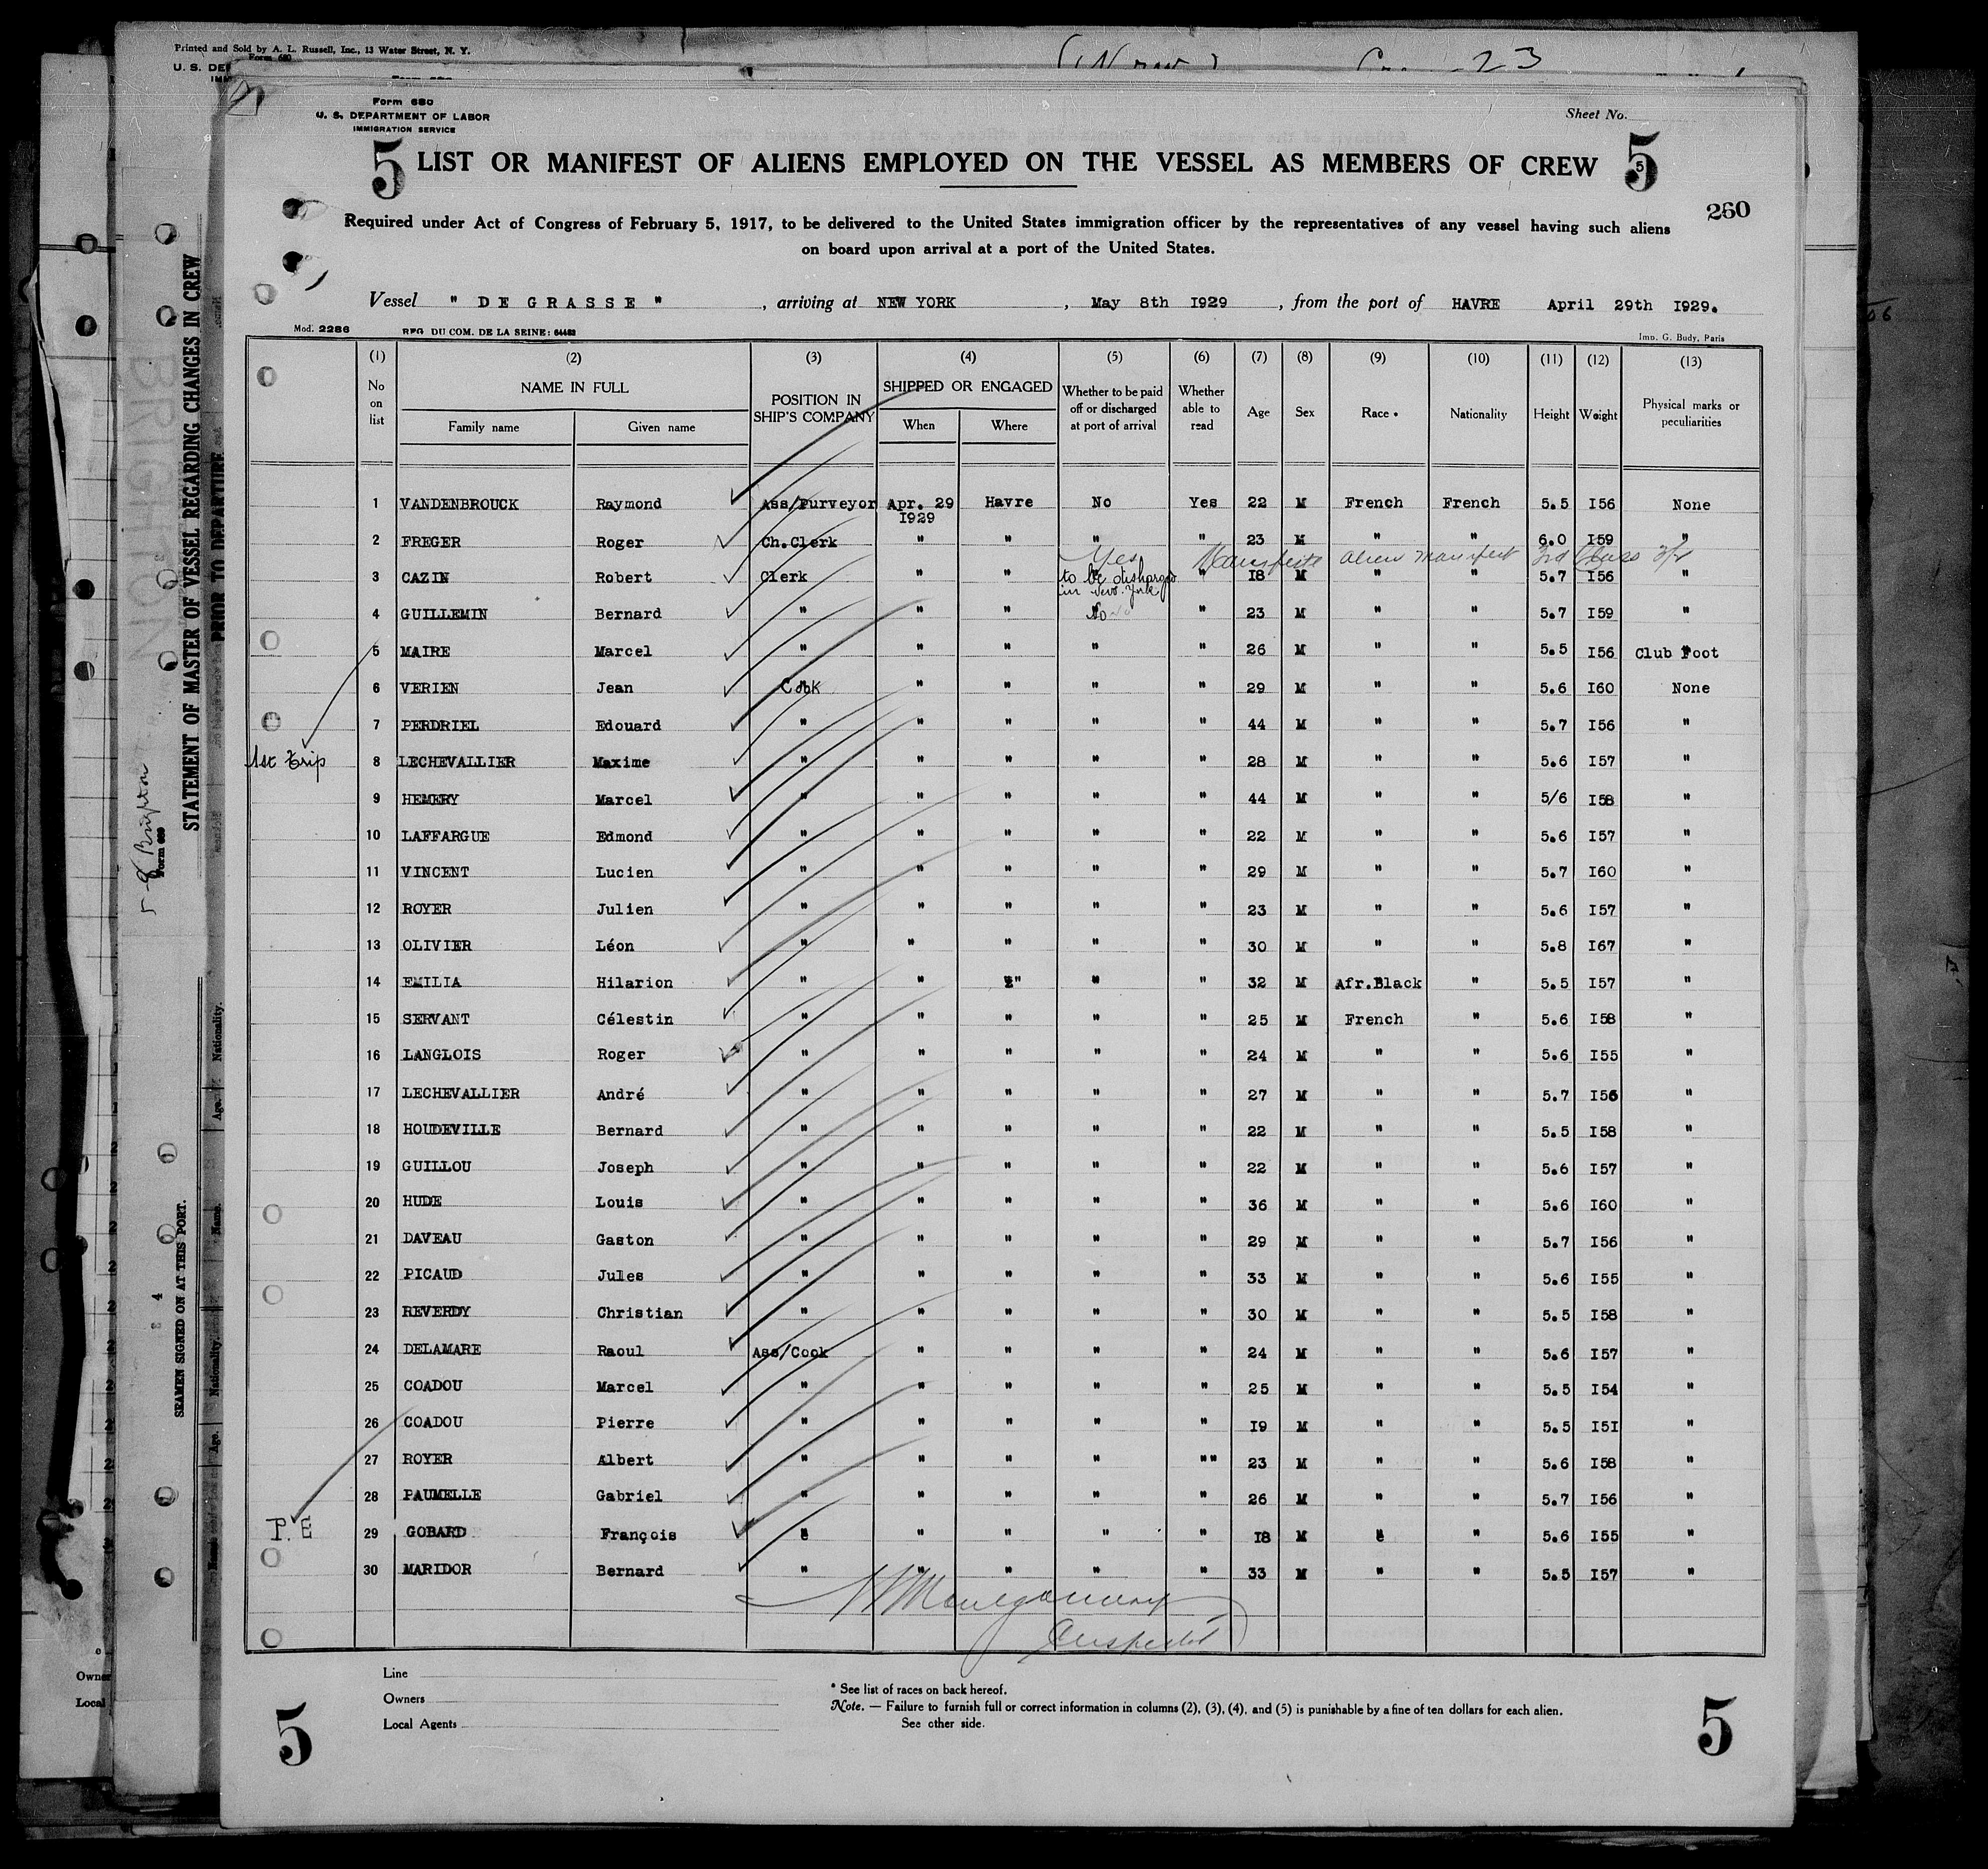 Printed and Sold by A. L. Russell, Inc., 13 Water Street, N. Y.
Form 680
U. S. DEP
23
STATEMENT OF MASTER OF VESSEL REGARDING CHANGES IN CREW
PRIOR TO DEPARTURE
BRIGHTON
5 Brighton
Form 689
SEAMEN SIGNED ON AT THIS PORT.
Nationality.
Age.
Name.
Nationality.
Age.
Owner
Local
Form 680
U. S. DEPARTMENT OF LABOR
IMMIGRATION SERVICE
Sheet No.
5 LIST OR MANIFEST OF ALIENS EMPLOYED ON THE VESSEL AS MEMBERS OF CREW 5
260
Required under Act of Congress of February 5, 1917, to be delivered to the United States immigration officer by the representatives of any vessel having such aliens
on board upon arrival at a port of the United States.
Vessel " DE GRASSE " , arriving at NEW YORK , May 8th I929 , from the port of HAVRE April 29th I929.
Mod. 2286 REG. DU COM. DE LA SEINE: 64462 Imp. G. Budy, Paris
(1) (2) (3) (4) (5) (6) (7) (8) (9) (10) (11) (12) (13)
No on list NAME IN FULL Family name Given name POSITION IN SHIP'S COMPANY SHIPPED OR ENGAGED When Where Whether to be paid off or discharged at port of arrival Whether able to read Age Sex Race * Nationality Height Weight Physical marks or peculiarities
1 VANDENBROUCK Raymond Ass/Purveyor Apr. 29 I929 Havre No Yes 22 M French French 5.5 I56 None
2 FREGER Roger Ch.Clerk " " " " 23 M " " 6.0 I59 "
Yes Manifest alien manifest 3rd Class
3 CAZIN Robert Clerk " " " " I8 M " " 5.7 I56 "
to be discharged in New York
4 GUILLEMIN Bernard " " " No " 23 M " " 5.7 I59 "
5 MAIRE Marcel " " " " " 26 M " " 5.5 I56 Club Foot
6 VERIEN Jean Cook " " " " 29 M " " 5.6 I60 None
7 PERDRIEL Edouard " " " " " 44 M " " 5.7 I56 "
1st Trip 8 LECHEVALLIER Maxime " " " " " 28 M " " 5.6 I57 "
9 HEMERY Marcel " " " " " 44 M " " 5/6 I58 "
10 LAFFARGUE Edmond " " " " " 22 M " " 5.6 I57 "
11 VINCENT Lucien " " " " " 29 M " " 5.7 I60 "
12 ROYER Julien " " " " " 23 M " " 5.6 I57 "
13 OLIVIER Léon " " " " " 30 M " " 5.8 I67 "
14 EMILIA Hilarion " " " " " 32 M Afr.Black " 5.5 I57 "
15 SERVANT Célestin " " " " " 25 M French " 5.6 I58 "
16 LANGLOIS Roger " " " " " 24 M " " 5.6 I55 "
17 LECHEVALLIER André " " " " " 27 M " " 5.7 I56 "
18 HOUDEVILLE Bernard " " " " " 22 M " " 5.5 I58 "
19 GUILLOU Joseph " " " " " 22 M " " 5.6 I57 "
20 HUDE Louis " " " " " 36 M " " 5.6 I60 "
21 DAVEAU Gaston " " " " " 29 M " " 5.7 I56 "
22 PICAUD Jules " " " " " 33 M " " 5.6 I55 "
23 REVERDY Christian " " " " " 30 M " " 5.5 I58 "
24 DELAMARE Raoul Ass/Cook " " " " 24 M " " 5.6 I57 "
25 COADOU Marcel " " " " " 25 M " " 5.5 I54 "
26 COADOU Pierre " " " " " I9 M " " 5.5 I5I "
27 ROYER Albert " " " " "" 23 M " " 5.6 I58 "
28 PAUMELLE Gabriel " " " " " 26 M " " 5.7 I56 "
P.E 29 GOBARD François " " " " " I8 M " " 5.6 I55 "
30 MARIDOR Bernard " " " " " 33 M " " 5.5 I57 "
Montgomery
Inspector
Line
Owners
Local Agents
* See list of races on back hereof.
Note. — Failure to furnish full or correct information in columns (2), (3), (4), and (5) is punishable by a fine of ten dollars for each alien.
See other side.
5 5